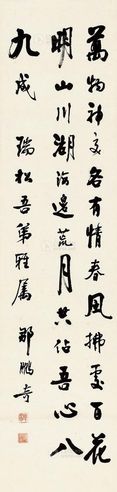 萬物神交各有情春風拂處百花
明山川湖海邊荒月共佔吾心八
九成 瑞松吾弟雅屬 鄒鵬奇